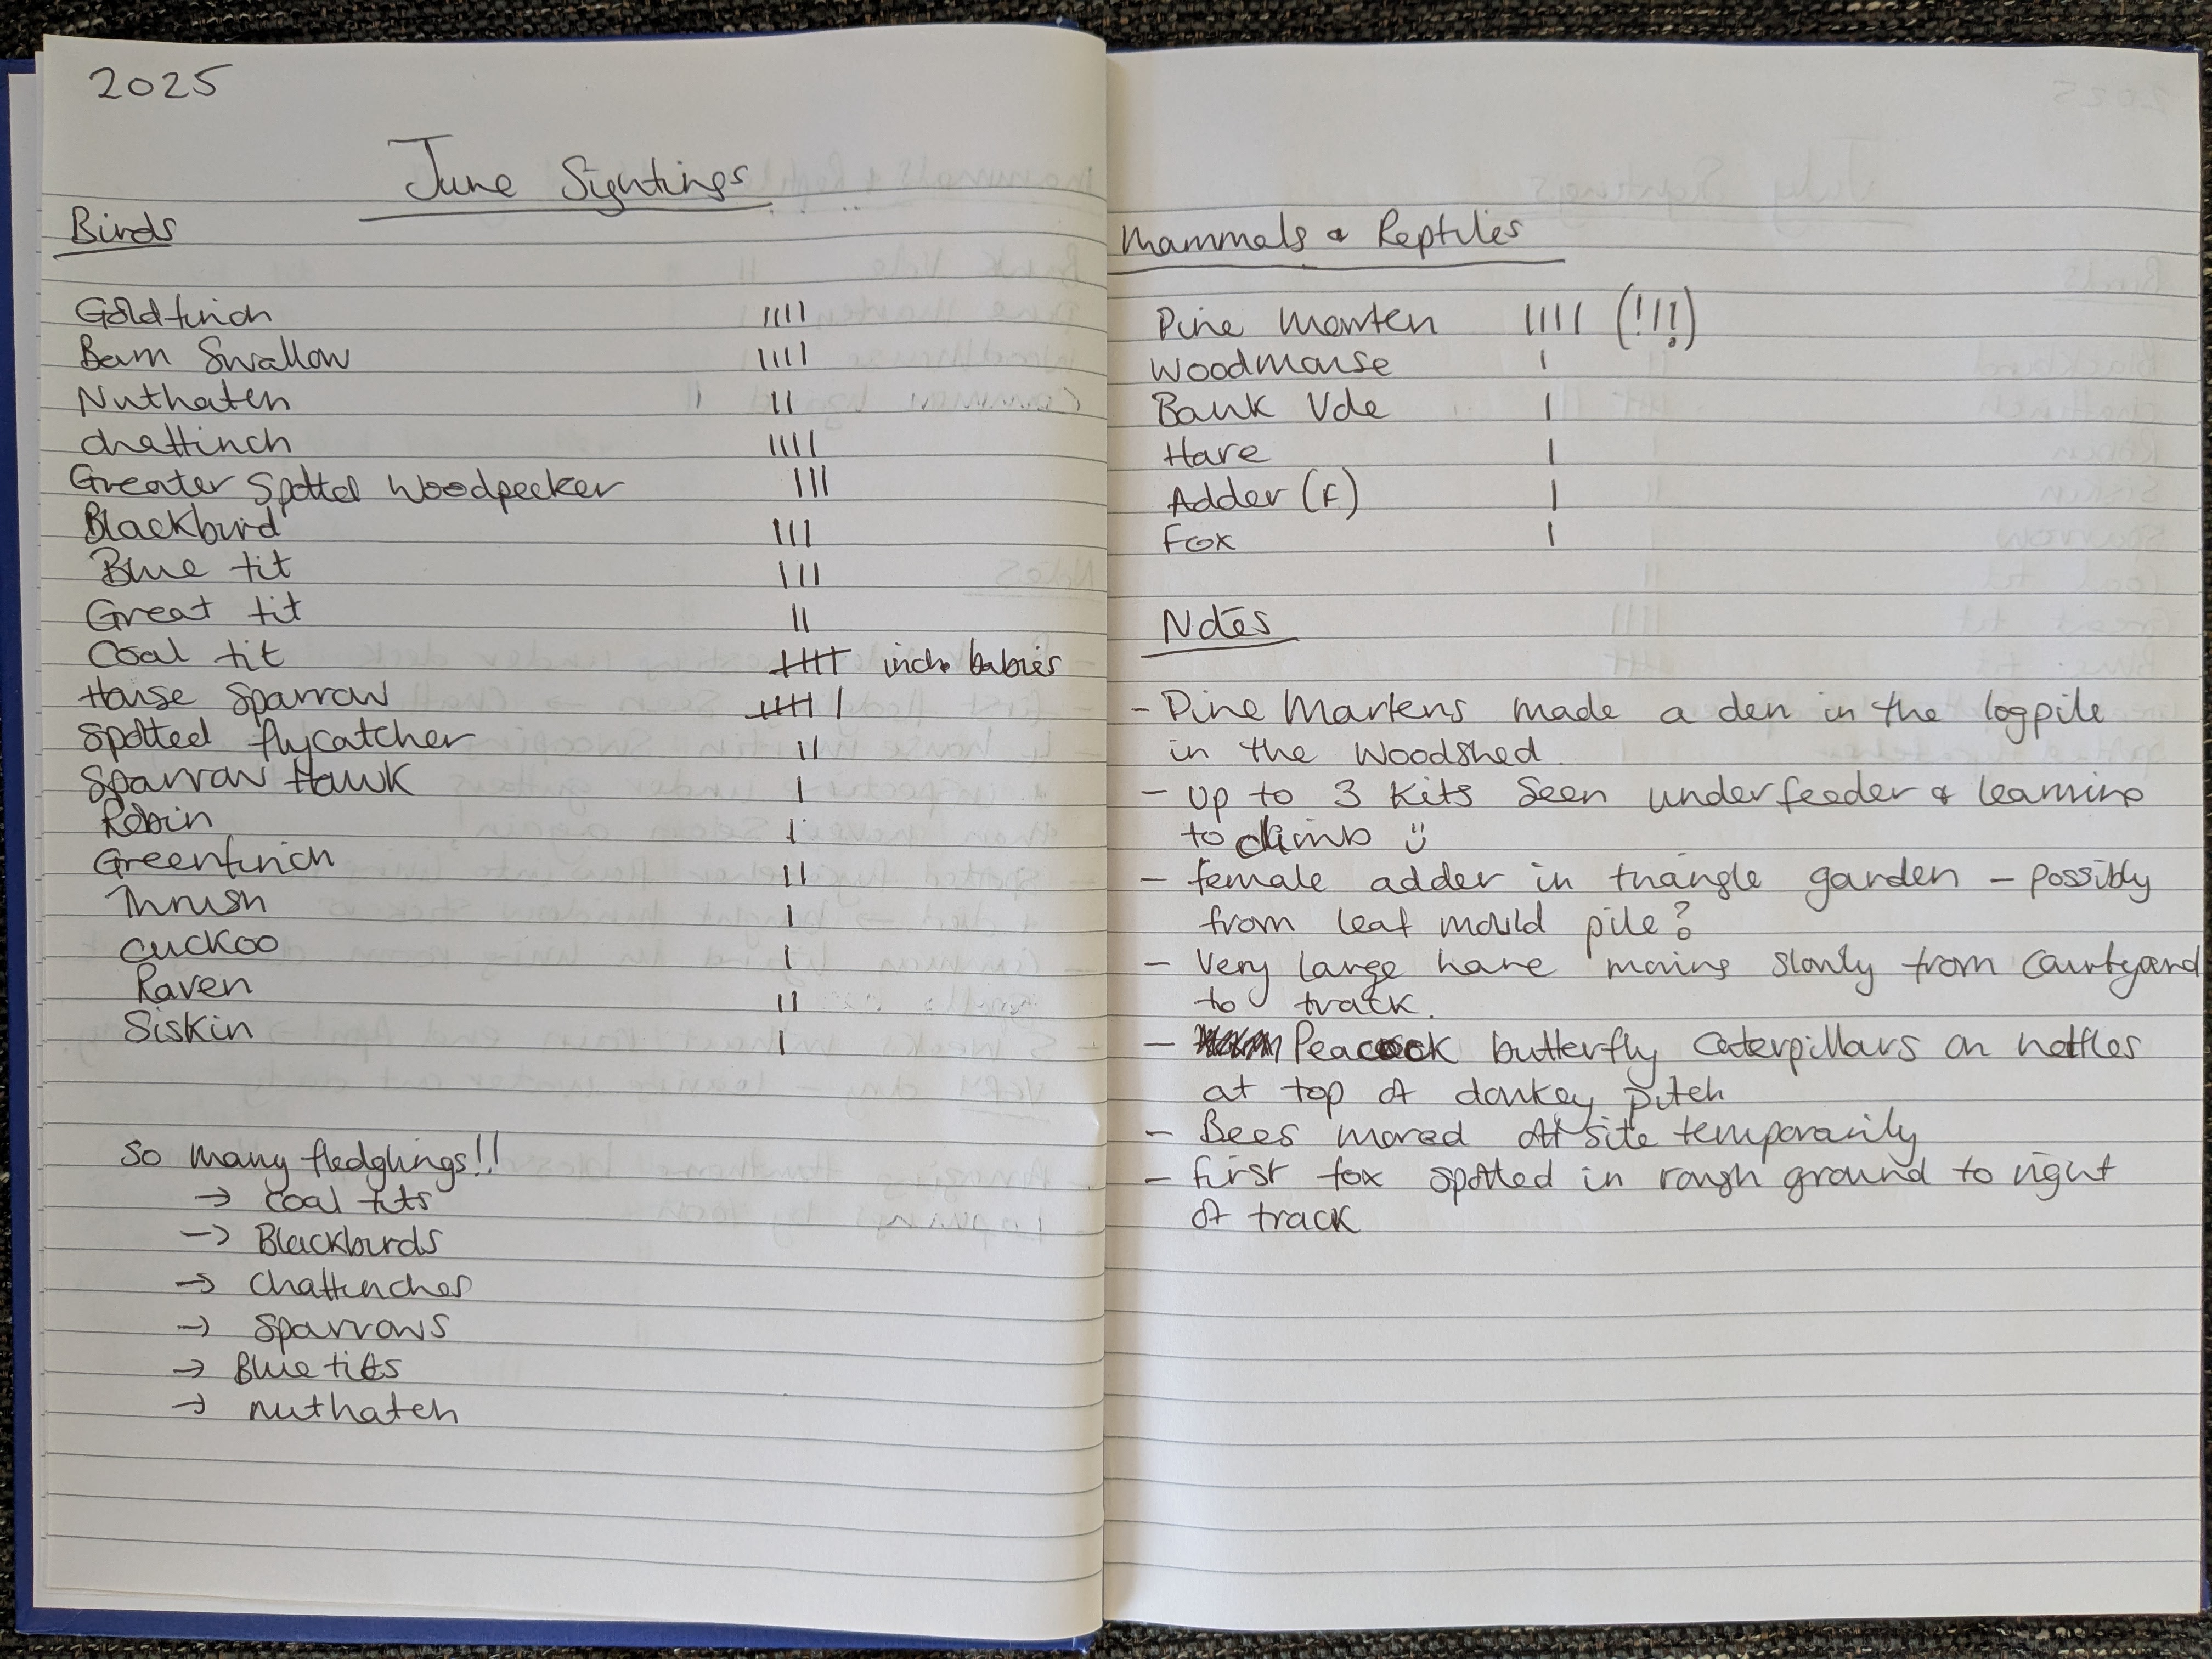 2025
June Sightings
Birds
Goldfinch IIII
Barn Swallow IIII
Nuthatch II
chaffinch IIII
Greater Spotted Woodpecker III
Blackbird III
Blue tit III
Great tit II
Coal tit IIII incl. babies
House Sparrow IIII I
Spotted flycatcher II
Sparrow Hawk I
Robin I
Greenfinch II
Thrush I
Cuckoo I
Raven II
Siskin I
So many fledglings!!
→ coal tits
→ Blackbirds
→ Chaffinches
→ Sparrows
→ Blue tits
→ nuthatch
Mammals & Reptiles
Pine Marten IIII (!!!)
Woodmouse I
Bank Vole I
Hare I
Adder (F) I
Fox I
Notes
- Pine Martens made a den in the logpile
in the Woodshed.
- Up to 3 Kits seen under feeder & learning
to climb ü
- female adder in triangle garden - possibly
from leaf mould pile?
- Very large hare moving slowly from Courtyard
to track.
- Peacock butterfly caterpillars on nettles
at top of donkey pitch
- Bees moved off site temporarily
- First fox spotted in rough ground to right
of track